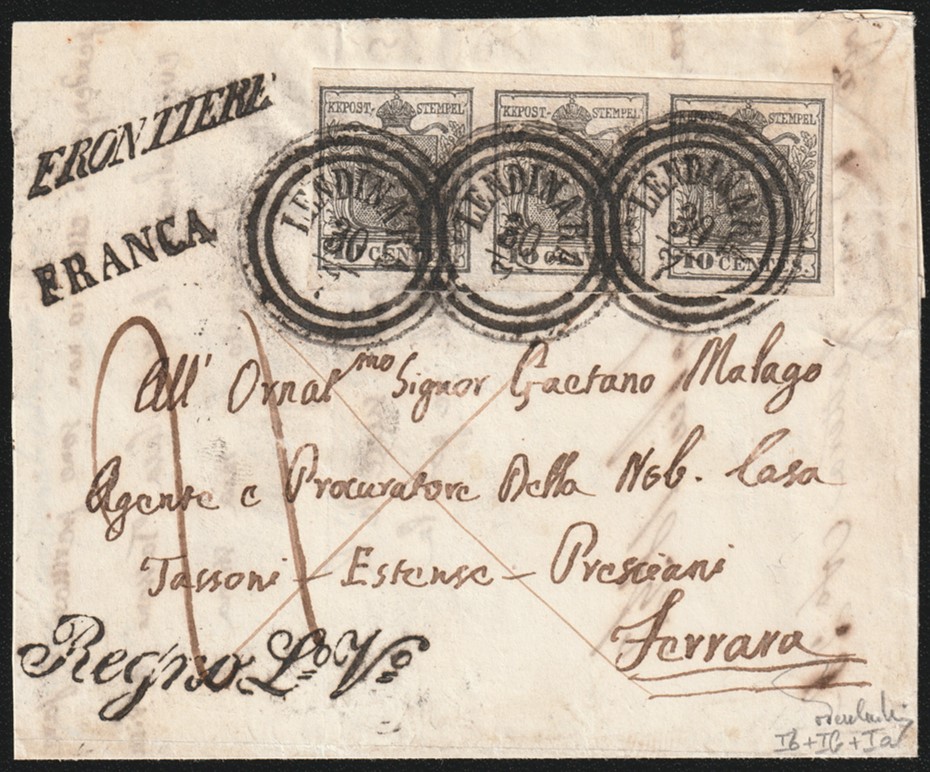 FRONTIERE
FRANCA
KKPOST- STEMPEL
KKPOST- STEMPEL
KKPOST- STEMPEL
LENDINARA
LENDINARA
LENDINARA
30
30
30
CENTES.
10 CENTES.
10 CENTES.
All' Ornatmo Signor Gaetano Malagò
Agente e Procuratore Della Nob. Casa
Tassoni - Estense - Presciani
Ferrara
Regno Lo Vo
Ib+Ib+Ia